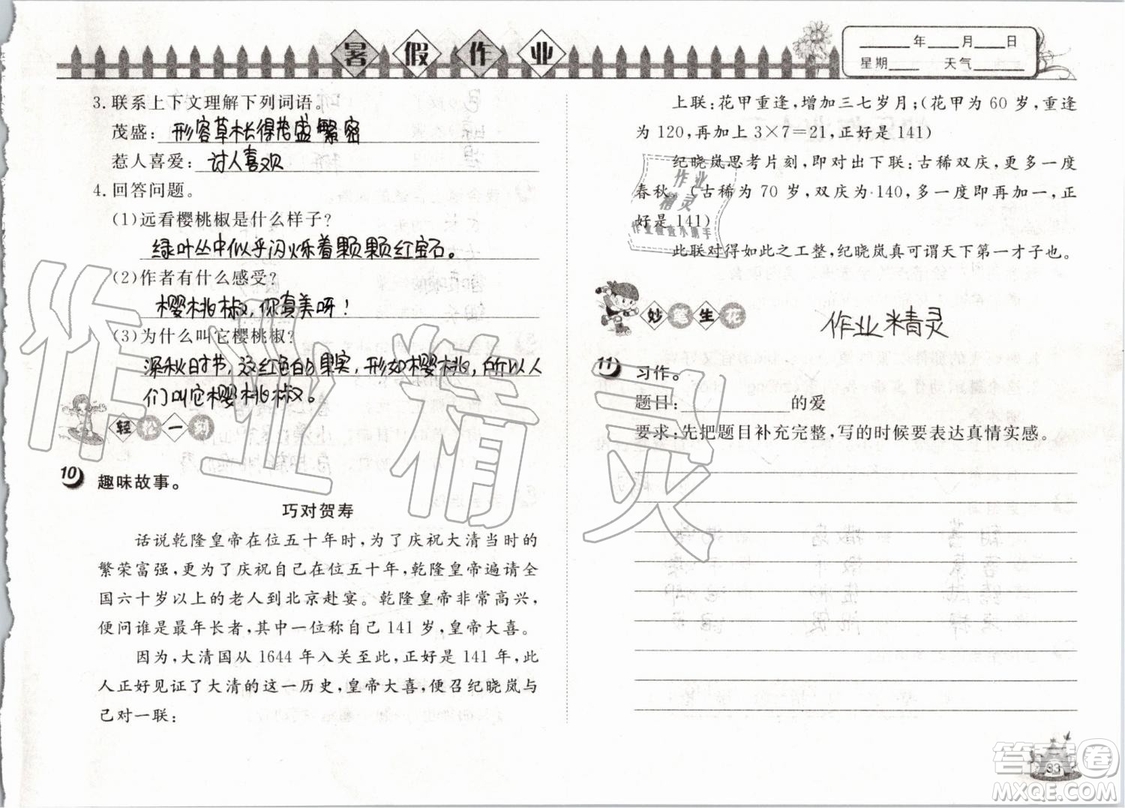 暑假作业
____年____月____日
星期____ 天气____
3.联系上下文理解下列词语。
茂盛:形容草长得茂盛繁密
惹人喜爱:讨人喜欢
4.回答问题。
(1)远看樱桃椒是什么样子?
绿叶丛中似乎闪烁着颗颗红宝石。
(2)作者有什么感受?
樱桃椒,你真美呀!
(3)为什么叫它樱桃椒?
深秋时节,这红色的果实,形如樱桃,所以人
们叫它樱桃椒。
轻松一刻
10 趣味故事。
巧对贺寿
话说乾隆皇帝在位五十年时,为了庆祝大清当时的
繁荣富强,更为了庆祝自己在位五十年,乾隆皇帝宴请全
国六十岁以上的老人到北京赴宴。乾隆皇帝非常高兴,
便问谁是最年长者,其中一位称自己 141 岁,皇帝大喜。
因为,大清国从 1644 年入关至此,正好是 141 年,此
人正好见证了大清的这一历史,皇帝大喜,便召纪晓岚与
己对一联:
上联:花甲重逢,增加三七岁月;(花甲为 60 岁,重逢
为 120,再加上 3×7=21,正好是 141)
纪晓岚思考片刻,即对出下联:古稀双庆,更多一度
春秋。(古稀为 70 岁,双庆为 140,多一度即加上一,正
好是 141)
此联对得如此之工整,纪晓岚真可谓天下第一才子也。
妙笔生花
作业精灵
11 习作。
题目:__________的爱
要求:先把题目补充完整,写的时候要表达真情实感。
作业精灵
作业
精灵
33
答案圈
MXQE.COM